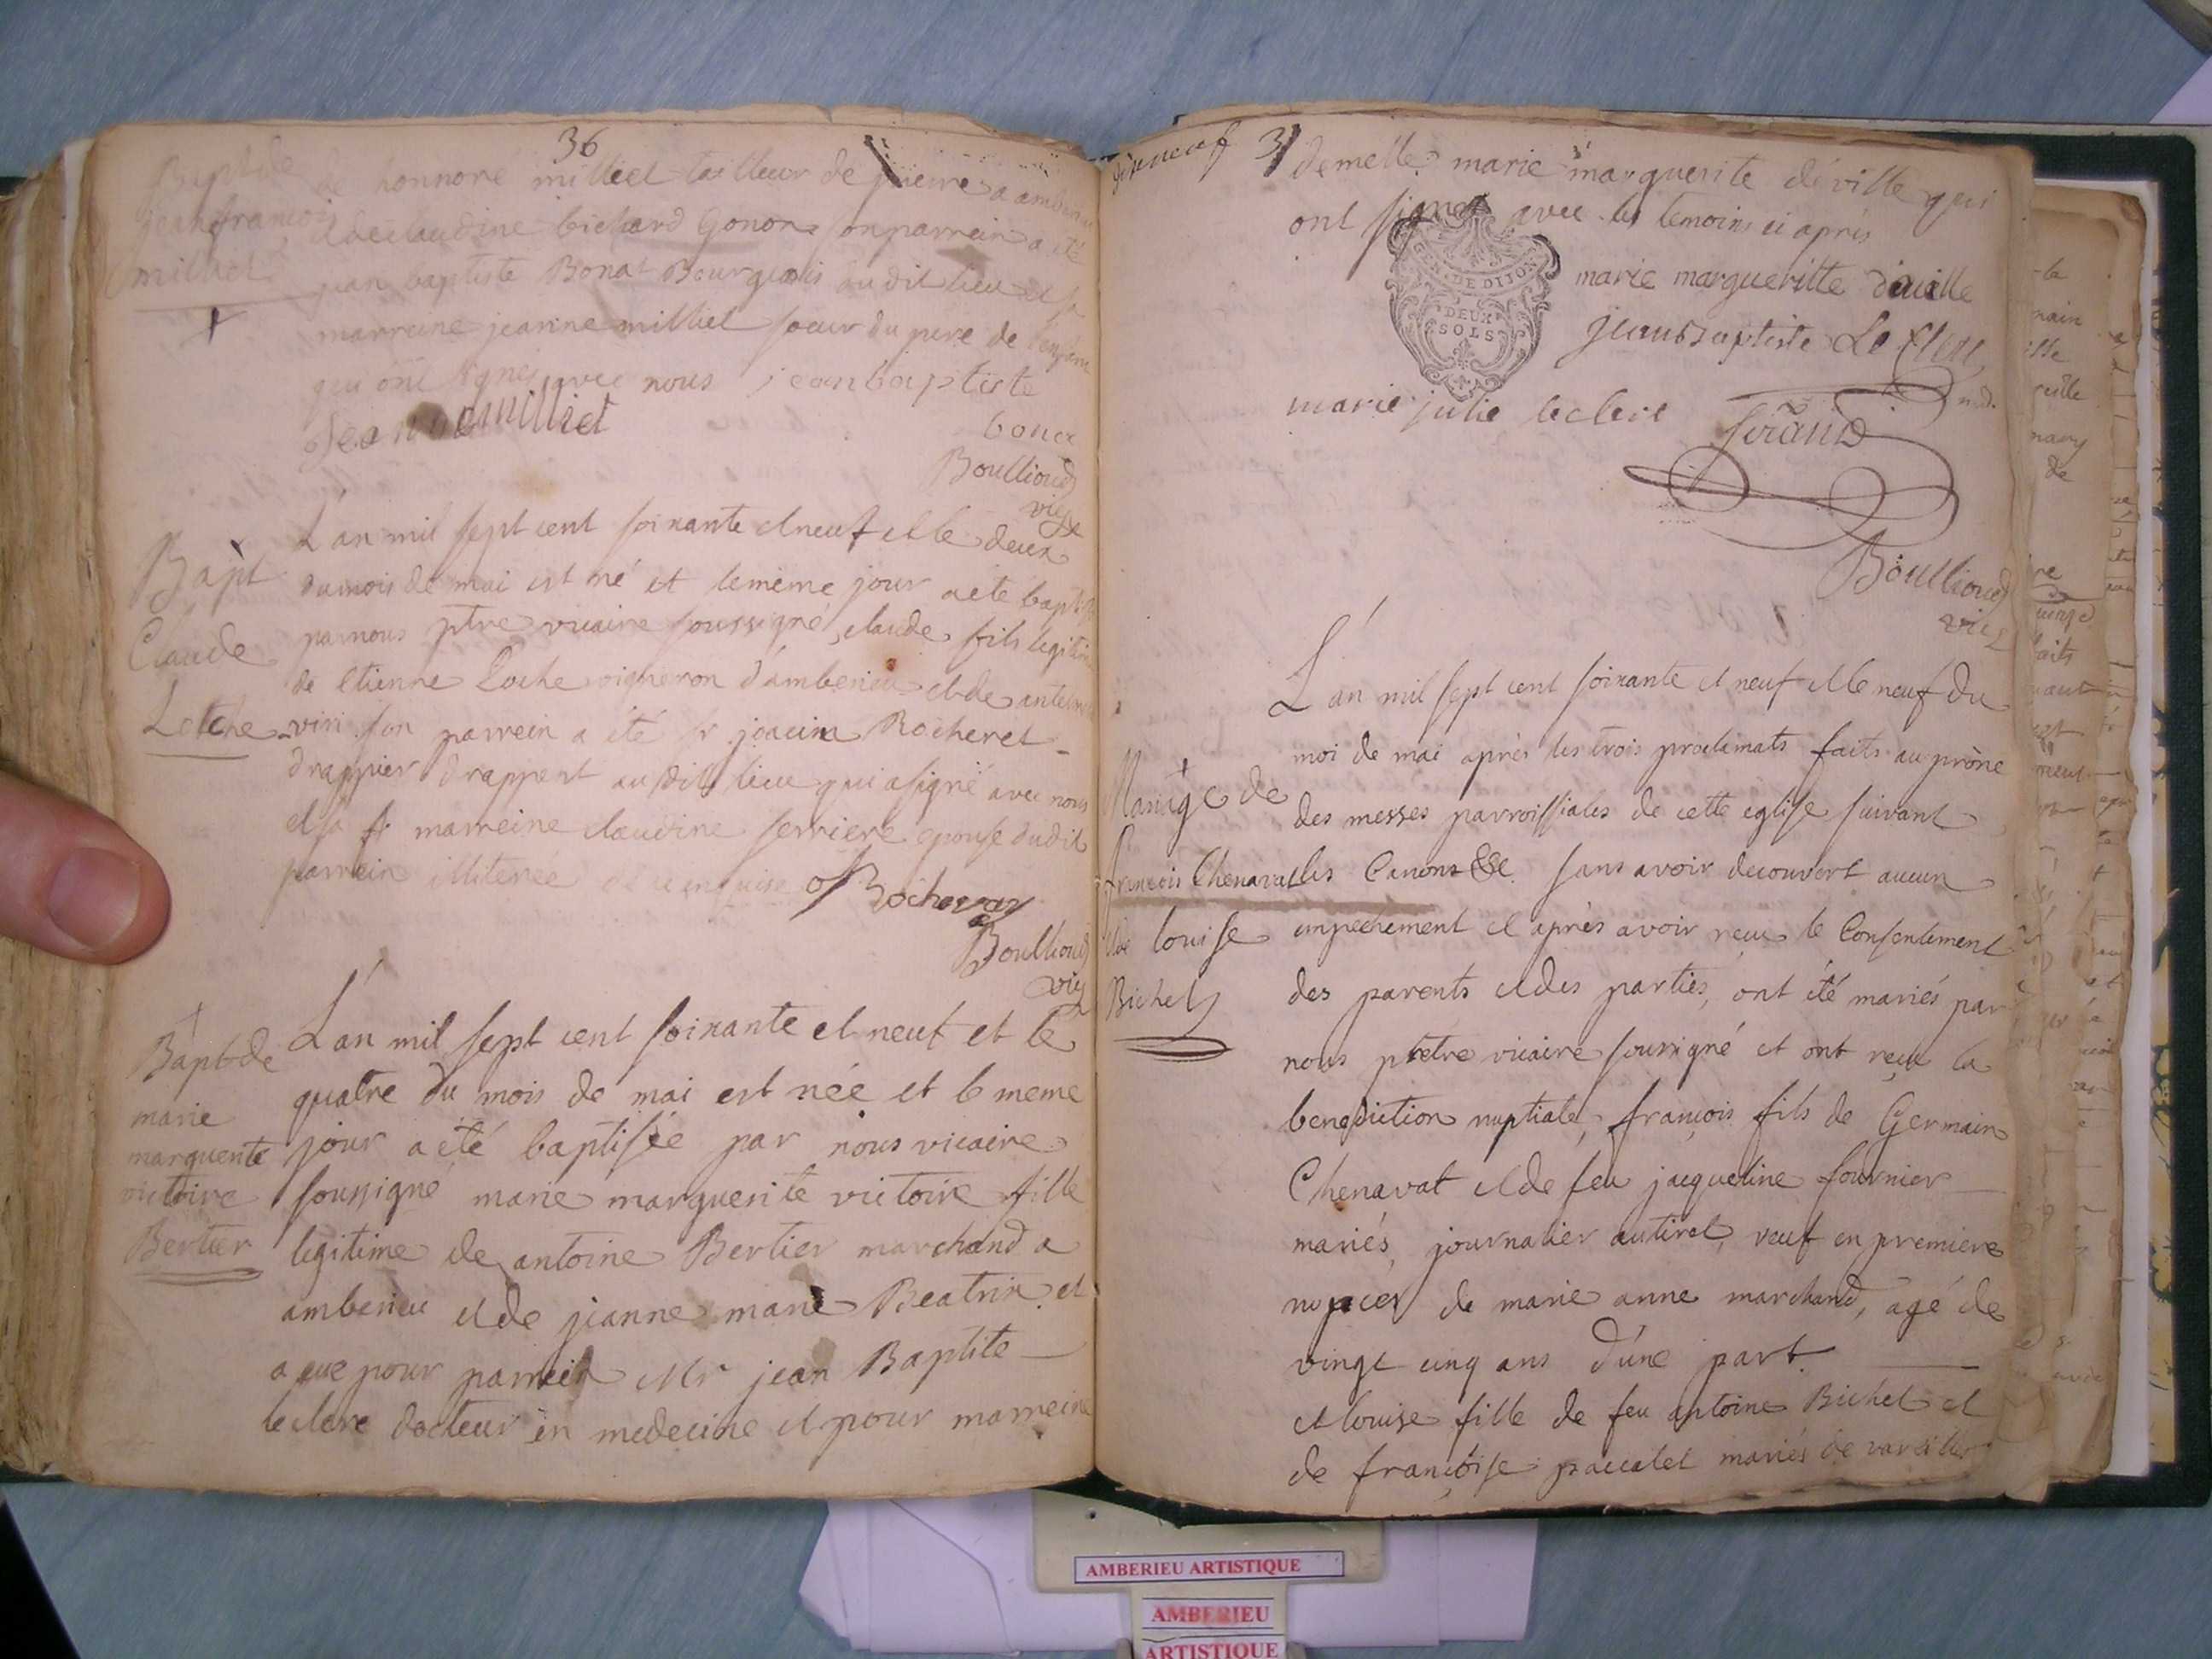 36
Bapt de
jean françois
milliet
de honnore milliet tailleur de pierre a amberieu
et de claudine bichard Gonon son parrein a été
jean baptiste Bonat Bourgeois au dit lieu et sa
marreine jeanne milliet soeur du pere de l'enfant
qui ont signes avec nous jean baptiste
Jeanne milliet
Boullioud
vic
Bapt
Claude
Loche
L'an mil sept cent soixante et neuf et le deux
du mois de mai est né et le même jour a été baptisé
par nous ptre vicaire soussigné, claude fils legitime
de Etienne Loche vigneron d'amberieu et de
son parrein a été sr joacim Rocheret
drappier drappent au dit lieu qui a signé avec nous
et sa marreine claudine serriere epouse dudit
parrein illiterée de ce enquise
Boullioud
vic
Bapt de
marie
marguerite
victoire
Bertier
L'an mil sept cent soixante et neuf et le
quatre du mois de mai est née et le meme
jour a été baptisée par nous vicaire
soussigné marie marguerite victoire fille
legitime de antoine Bertier marchand a
amberieu et de jeanne marie Beatrix et
a eue pour parrein Mr jean Baptite
leclerc docteur en medecine et pour marreine
dixneuf 37
demelle marie marguerite déville qui
ont signés avec les temoins ci après
GEN. DE DIJON
DEUX
SOLS
marie margueritte
jean Baptiste Le Clerc
m.d.
marie julie leclerc
Boullioud
vic
Mariage de
françois Chenavat
et de louise
Bichet
L'an mil sept cent soixante et neuf et le neuf du
moi de mai après les trois proclamats faits au prône
des messes parroissiales de cette eglise suivant
les Canons &c sans avoir decouvert aucun
empechement et après avoir reçu le Consentement
des parents et des parties, ont été mariés par
nous pretre vicaire soussigné et ont reçu la
benediction nuptiale, françois fils de Germain
Chenavat et de feu jacqueline fournier
mariés, journalier au tiret, veuf en premiere
nopces de marie anne marchand, agé de
vingt cinq ans d'une part.
et louise fille de feu antoine Bichet et
de françoise paccalet mariés de vareilles
AMBERIEU ARTISTIQUE
AMBERIEU
ARTISTIQUE